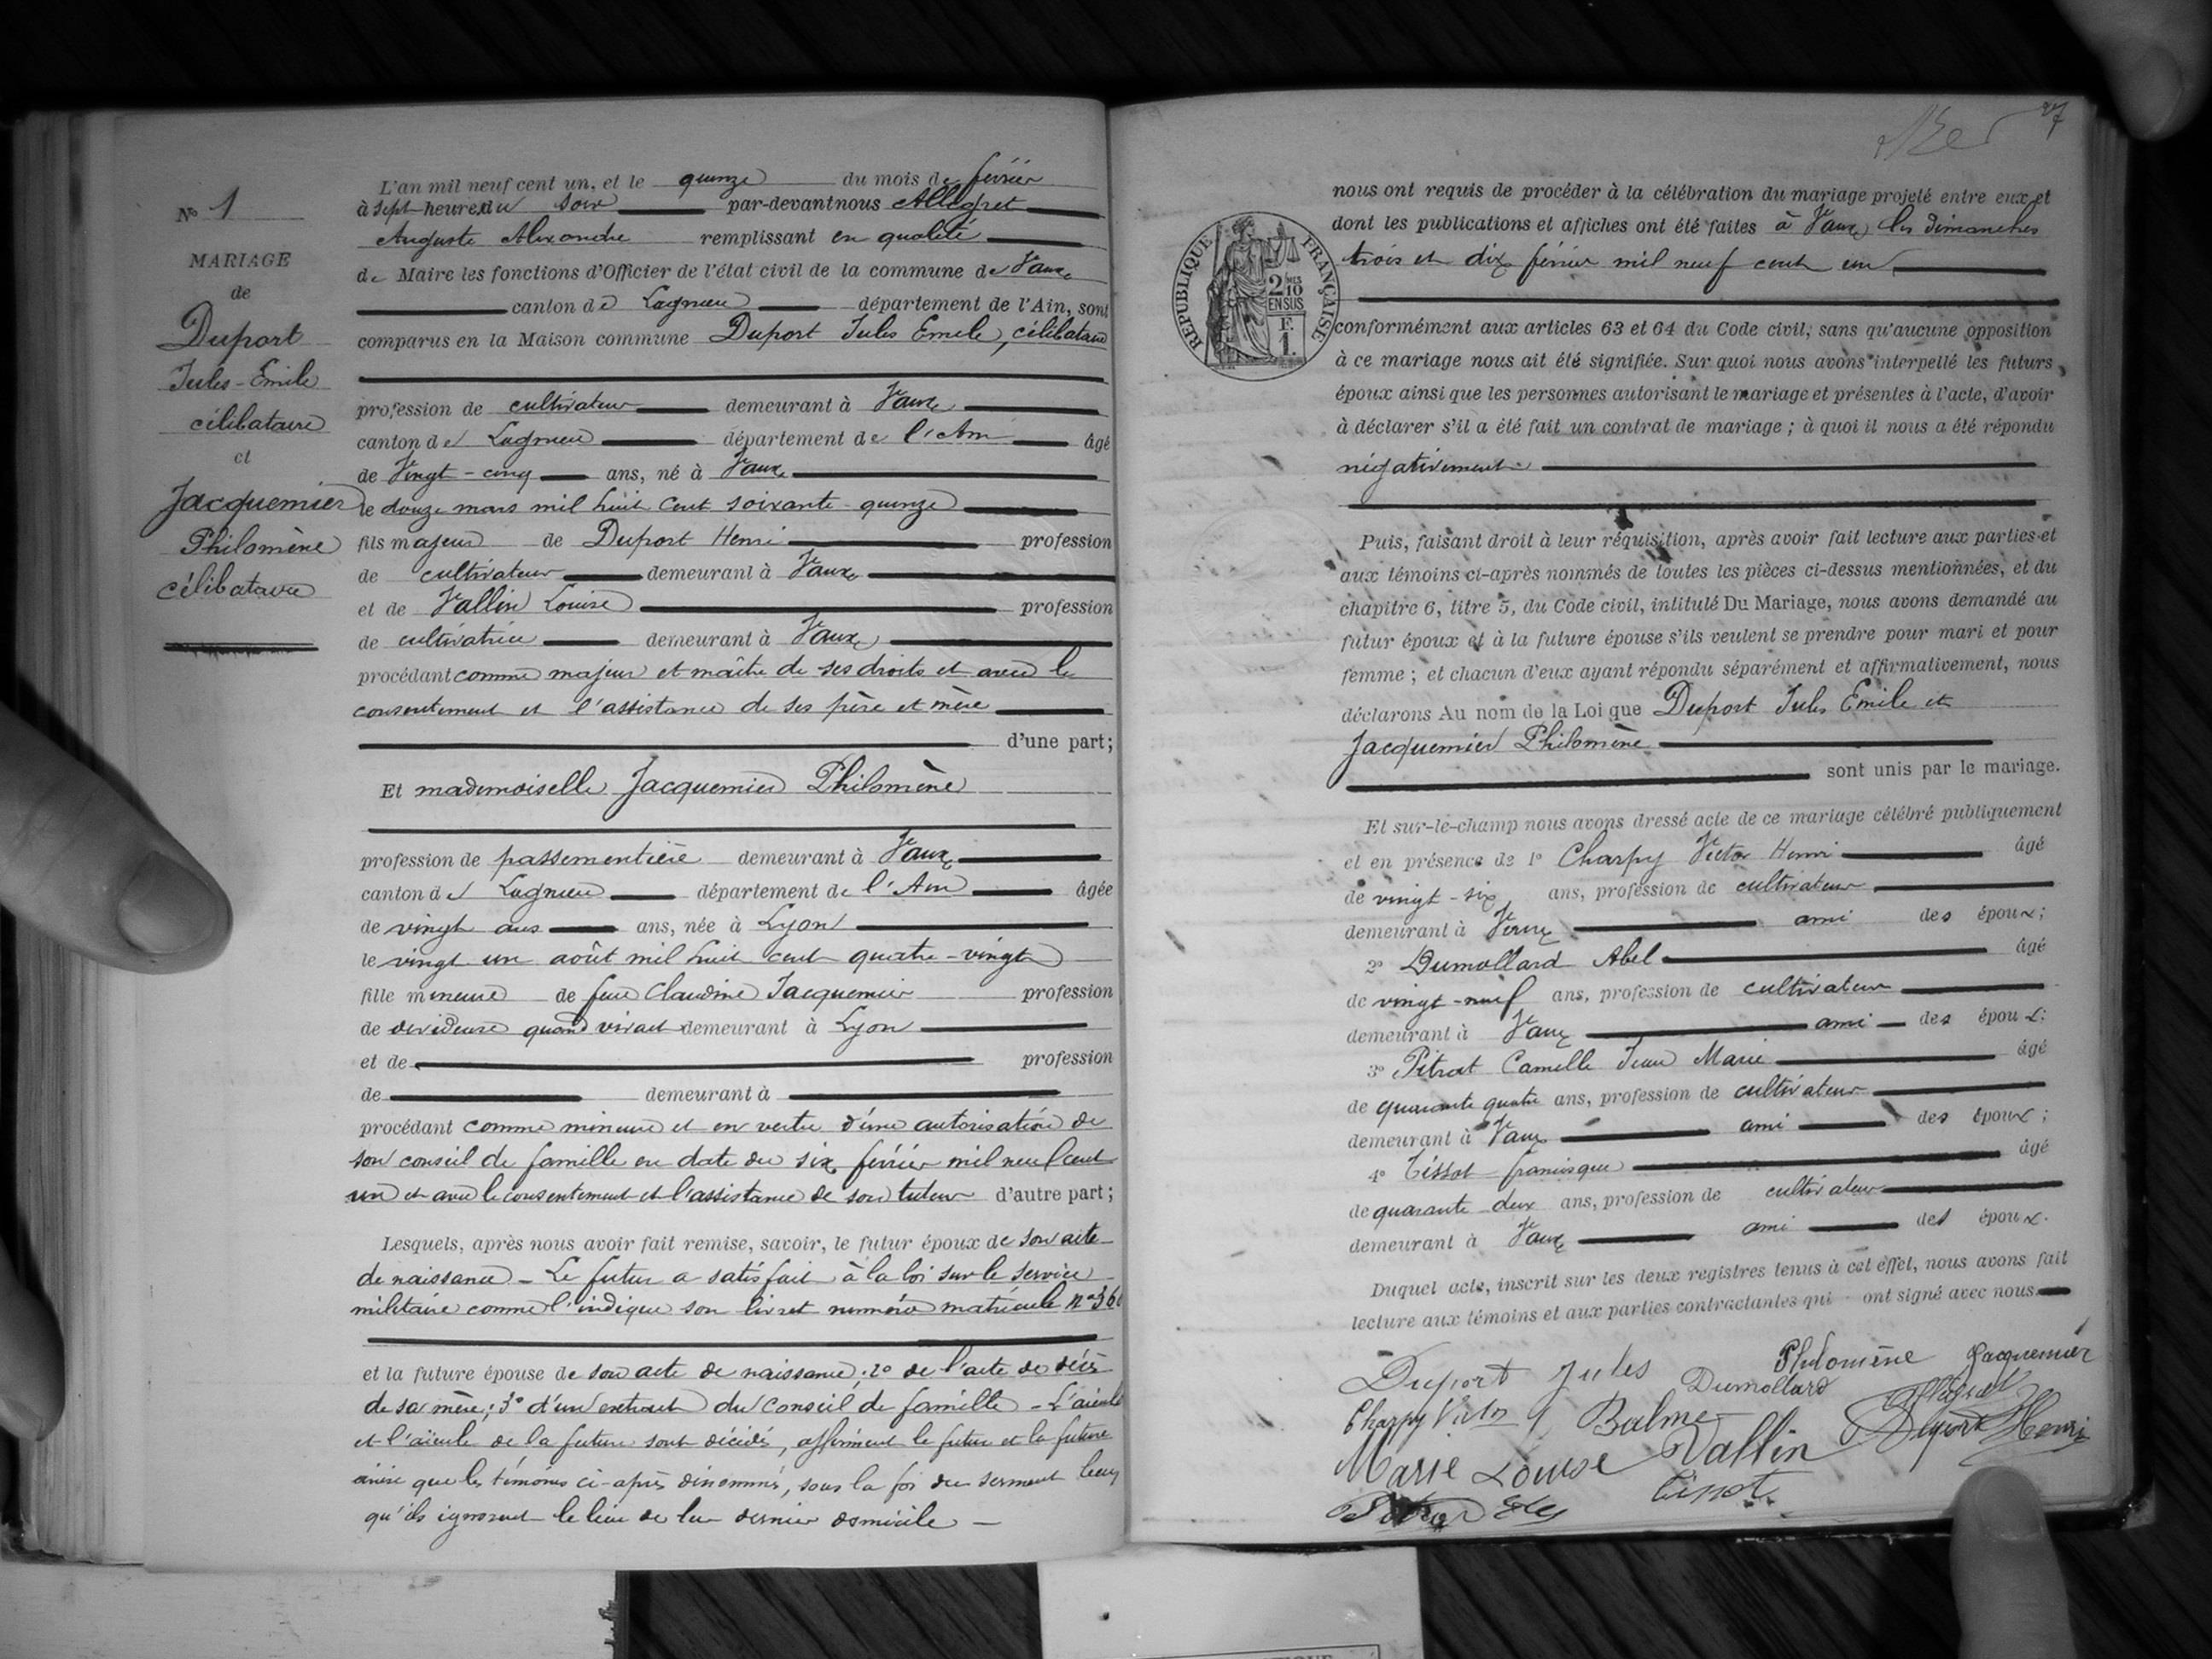 L'an mil neuf cent un, et le quinze du mois de février
N° 1
à sept heures du soir par-devant nous Allegret
Auguste Alexandre remplissant en qualité
MARIAGE
de Maire les fonctions d'Officier de l'état civil de la commune de Vaux
de
canton de Lagnieu département de l'Ain, sont
Duport
comparus en la Maison commune Duport Jules Emile, célibataire
Jules-Emile
célibataire
et
Jacquemier
Philomène
célibataire
profession de cultivateur demeurant à Vaux
canton de Lagnieu département de l'Ain âgé
de Vingt-cinq ans, né à Vaux
le douze mars mil huit cent soixante-quinze
fils majeur de Duport Henri profession
de cultivateur demeurant à Vaux
et de Vallin Louise profession
de cultivatrice demeurant à Vaux
procédant comme majeur et maître de ses droits et avec le
consentement et l'assistance de ses père et mère
d'une part;
Et mademoiselle Jacquemier Philomène
profession de passementière demeurant à Vaux
canton de Lagnieu département de l'Ain âgée
de vingt ans ans, née à Lyon
le vingt un août mil huit cent quatre-vingt
fille mineure de feue Claudine Jacquemier profession
de devideuse quand vivait demeurant à Lyon
et de profession
de demeurant à
procédant comme mineure et en vertu d'une autorisation de
son conseil de famille en date du six février mil neuf cent
un et avec le consentement et l'assistance de son tuteur d'autre part;
Lesquels, après nous avoir fait remise, savoir, le futur époux de son acte
de naissance - Le futur a satisfait à la loi sur le service
militaire comme l'indique son livret numéro matricule n°
et la future épouse de son acte de naissance; 2° de l'acte de décès
de sa mère; 3° d'un extrait du Conseil de famille - L'aïeul
et l'aïeule de la future sont décédés, affirment le futur et la future
ainsi que les témoins ci-après dénommés, sous la foi du serment
qu'ils ignorent le lieu de leur dernier domicile -
27
nous ont requis de procéder à la célébration du mariage projeté entre eux et
dont les publications et affiches ont été faites à Vaux les dimanches
trois et dix février mil neuf cent un
RÉPUBLIQUE FRANÇAISE
2/10 MES
EN SUS
F.
1.
conformément aux articles 63 et 64 du Code civil, sans qu'aucune opposition
à ce mariage nous ait été signifiée. Sur quoi nous avons interpellé les futurs
époux ainsi que les personnes autorisant le mariage et présentes à l'acte, d'avoir
à déclarer s'il a été fait un contrat de mariage; à quoi il nous a été répondu
négativement.
Puis, faisant droit à leur réquisition, après avoir fait lecture aux parties et
aux témoins ci-après nommés de toutes les pièces ci-dessus mentionnées, et du
chapitre 6, titre 5, du Code civil, intitulé Du Mariage, nous avons demandé au
futur époux et à la future épouse s'ils veulent se prendre pour mari et pour
femme; et chacun d'eux ayant répondu séparément et affirmativement, nous
déclarons Au nom de la Loi que Duport Jules Emile et
Jacquemier Philomène
sont unis par le mariage.
Et sur-le-champ nous avons dressé acte de ce mariage célébré publiquement
et en présence de 1° Charpy Victor Henri âgé
de vingt-six ans, profession de cultivateur
demeurant à ami des époux;
2° Dumollard Abel âgé
de vingt-neuf ans, profession de cultivateur
demeurant à Vaux ami des époux:
3° Pitrat Camille Jean Marie âgé
de quarante quatre ans, profession de cultivateur
demeurant à Vaux ami des époux;
4° Tissot francisque âgé
de quarante-deux ans, profession de cultivateur
demeurant à Vaux ami des époux.
Duquel acte, inscrit sur les deux registres tenus à cet effet, nous avons fait
lecture aux témoins et aux parties contractantes qui ont signé avec nous
Duport Jules Philomène Jacquemier
Dumollard Allegret
Charpy Victor Balme Duport Henri
Marie Louise Vallin
Tissot